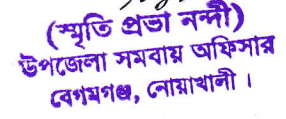 (স্মৃতি প্রভা নন্দী)
উপজেলা সমবায় অফিসার
বেগমগঞ্জ, নোয়াখালী ।